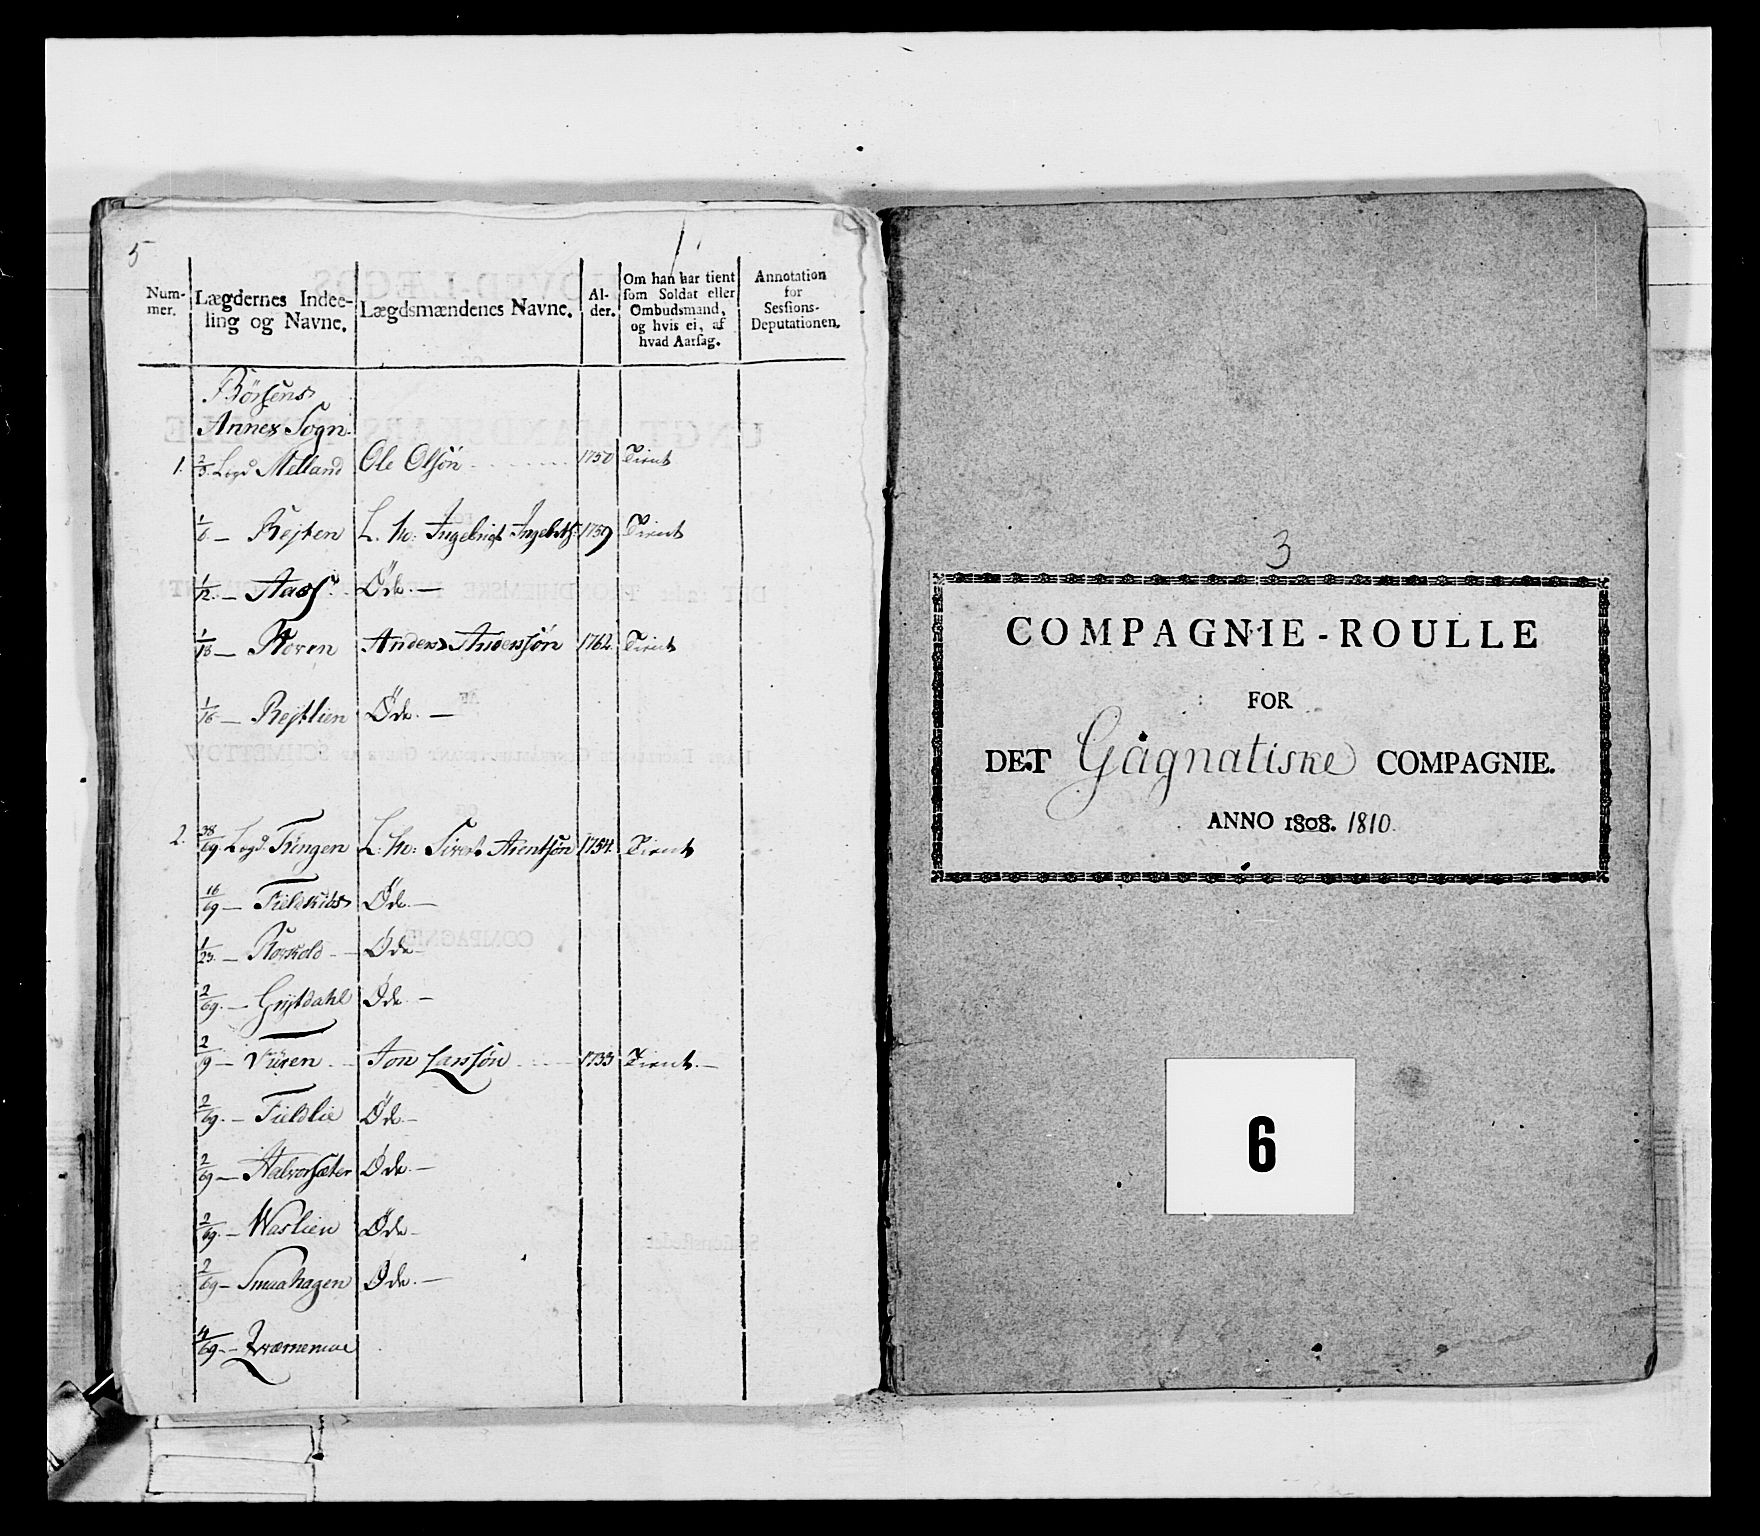 5
Num-
mer.
Lægdernes Indee-
ling og Navne.
Lægdsmændenes Navne.
Al-
der.
Om han har tient
som Soldat eller
Ombudsmand,
og hvis ei, af
hvad Aarsag.
Annotation
for
Sessions-
Deputationen.
Børsens
Annex Sogn.
1. 2/3. Legd Melland Ole Olsön 1750 Tient
1/6 — Rejten L. M: Ingebrigt Ingebrtſ: 1759 Tient
1/12. — Aasſ Öde. —
1/18 — Horen Anders Andersſön 1762. Tient
1/16 — Rejtlien Öde. —
2. 38/69. Legd. Tringen L. M: Sivert Arentsön 1754. Tient
16/69 — Fieldkids Öde. —
1/23. — Öde —
2/69. — Gristdahl Öde. —
2/19 — Vüren Jon Larsſön 1733 Tient. —
2/69. — Fieldlie Öde —
2/69 — Halvorsæter Öde. —
2/69. — Waslien Öde —
2/69 — Smaahagen Öde. —
4/69. — Qværnemoe
3
COMPAGNIE-ROULLE
FOR
DET Gagnatiske COMPAGNIE.
ANNO 1808. 1810.
6